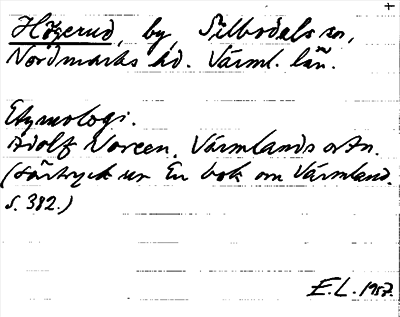 +
Högerud, by, Silbodals sn,
Nordmarks hd. Värml. län.
Etymologi.
Adolf Noreen. Värmlands ortn.
(Särtryck ur En bok om Värmland.
s. 382.)
E.L. 1957.